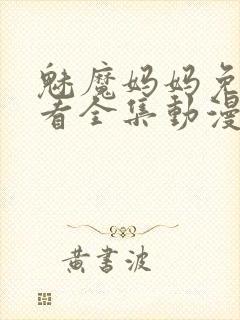 魅魔妈妈免
看全集動漫
黄書波